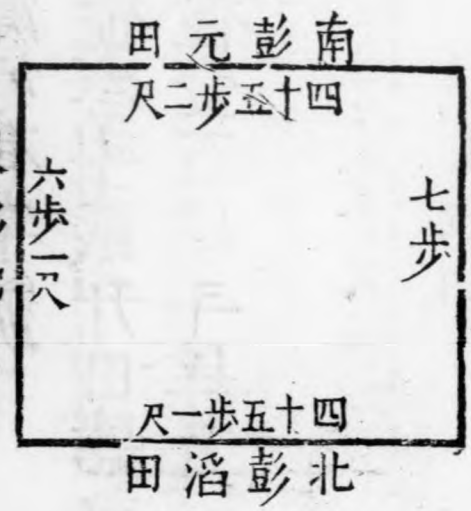 南彭元田
四十五步二尺
七步
六步一尺
四十五步一尺
北彭滔田